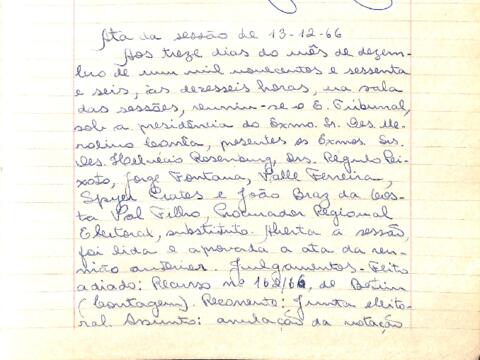 Ata da sessão de 13-12-66
Aos treze dias do mês de dezem-
bro de um mil novecentos e sessenta
e seis, às dezesseis horas, na sala
das sessões, reuniu-se o E. Tribunal,
sob a presidência do Exmo. Sr. Des. Me-
rolino Corrêa, presentes os Exmos. Srs.
Des. Helvécio Rosenburg, Drs. Régulo Pei-
xoto, Jorge Fontana, Valle Ferreira,
Spyer Prates e João Braz da Cos-
ta Val Filho, Procurador Regional
Eleitoral, substituto. Aberta a sessão,
foi lida e aprovada a ata da reu-
nião anterior. Julgamentos. Feito
adiado: Recurso nº 162/66, de Betim
(Contagem). Recorrente: Junta eleito-
ral. Assunto: anulação da votação